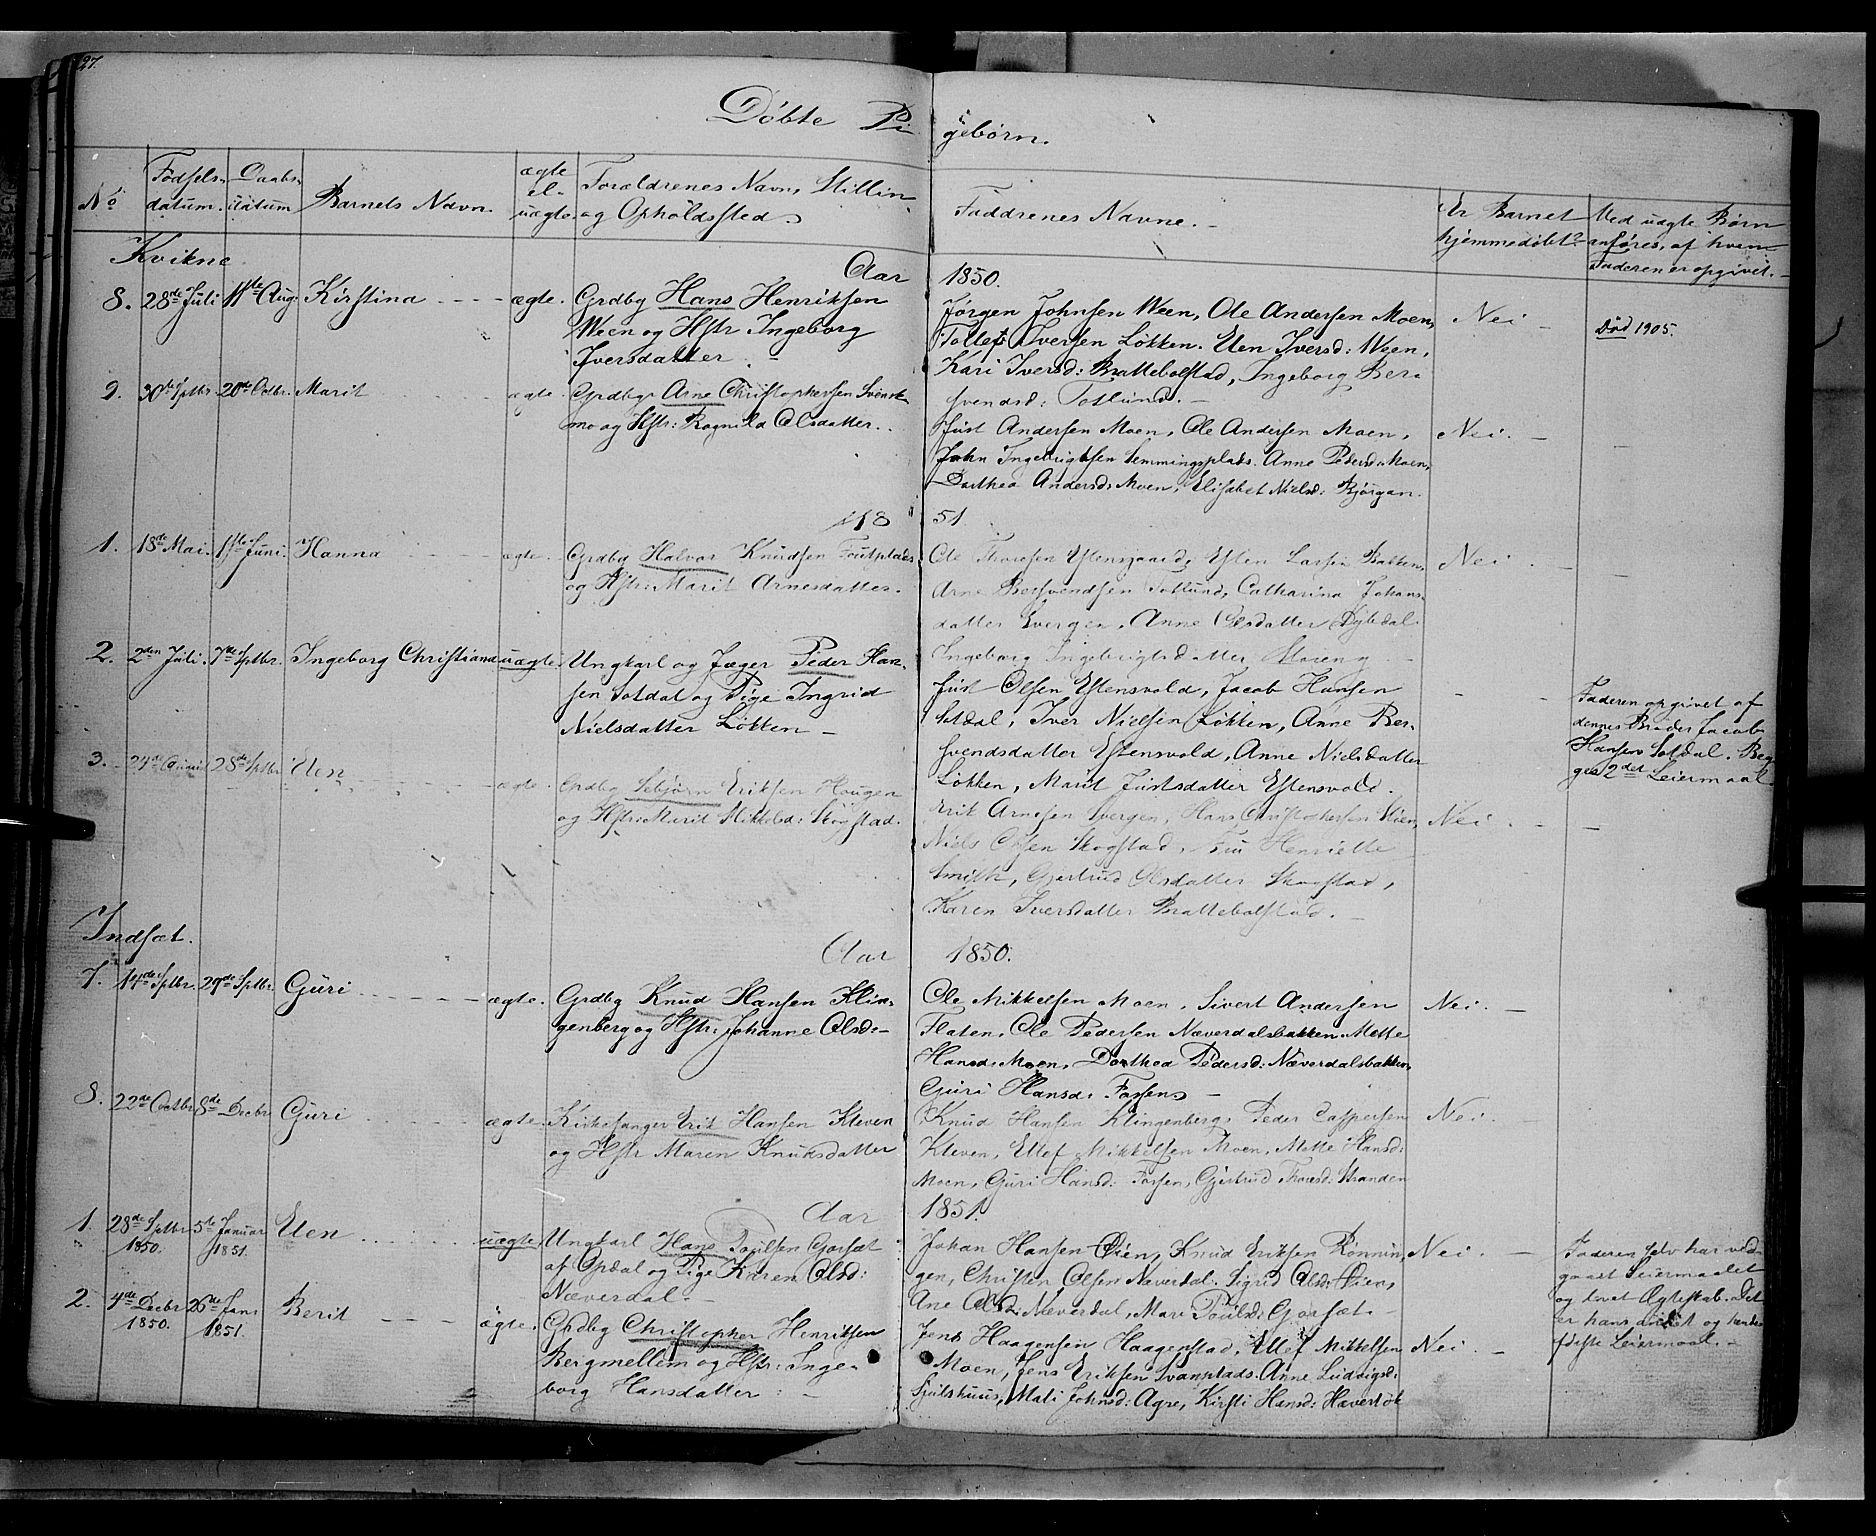 27.
Döbte Pi gebörn.
No
Födsels- datum.
Daabs- datum
Barnets Navn.
ægte el. uægte
Forældrenes Navn, Stilling og Opholdssted
Faddrenes Navne.
Er Barnet hjemmedöbt?
Ved uægte Börn anföres, af hvem Faderen er opgivet.
Kvikne.
Aar 1850.
8. 28de Juli 11te Aug. Kirstina ægte. Grdbg Hans Henriksen
Ween og Hstr Ingeborg
Iversdatter.
Jörgen Johnsen Ween, Ole Andersen Moen,
Tollef Iversen Lökken. Elen Iversd: Ween,
Kari Iversd: Brattebolstad, Ingeborg Ber-
svendsd: Totlund.
Nei
Död 1905.
9. 30te Sptbr. 20de Octbr. Marit ægte. Grdbgr Arne Christophersen Svensk-
mo og Hstr: Ragnild Olsdatter.
Just Andersen Moen, Ole Andersen Moen,
John Ingebrigtsen Semmingsplads. Anne Pedersd: Moen,
Dorthea Andersd: Moen, Elisabet Nielsd: Björgan.
Nei.
1851
1. 18de Mai. Juni. Hanna ægte. Grdbg Halvor Knudsen
og Hstr: Marit Arnesdatter.
Ole Thoresen Estensgaard, Esten Larsen Bakken,
Arne Bersvendsen Totlund, Catharina Johans-
datter Vergen, Anne Olsdatter Dybdal.
Ingeborg Ingebrigtsdatter
Nei
2. 2den Juli. 7de Sptbr. Ingeborg Christiana uægte Ungkarl og Jæger Peder Han-
sen Sotdal og Pige Ingrid
Nielsdatter Lökken
Just Olsen Estensvold, Jacob Hansen
Sotdal, Iver Nielsen Lökken, Anne Ber-
svendsdatter Estensvold, Anne Nielsdatter
Lökken, Marit Justsdatter Estensvold.
Faderen opgivet af
dennes Broder Jacob
Hansen Sotdal. Beg-
ges 2det Leiermaal
3. 28de Sptbr. Elen ægte. Grdbg Esbjörn Eriksen Hougen
og Hstr: Marit Mikkelsd: Skogstad.
Erik Arnesen Vergen, Hans Christophersen
Niels Olsen Skogstad, Fru Henriette
Smith, Gjertrud Olsdatter Skogstad,
Karen Iversdatter Brattebolstad.
Nei.
Indset.
Aar 1850.
7. 14de Sptbr. 29de Sptbr. Guri ægte. Grdbg Knud Hansen Klin-
genberg og Hstr: Johanne Olsd:
Ole Mikkelsen Moen, Sivert Andersen
Flaten, Ole Pedersen Næverdalsbakken Mette
Hansd: Moen, Dorthea Pedersd: Næverdalsbakken
Guri Hansd: Fossen
Nei.
8. 22de Octbr. 8de Decbr. Guri ægte Kirkesanger Erik Hansen Kleven
og Hstr Maren Knudsdatter
Knud Hansen Klingenberg, Peder Caspersen
Kleven, Ellef Mikkelsen Moen, Mette Hansd:
Moen, Guri Hansd: Fossen, Gjertrud Thoresd: Stranden
Nei.
Aar 1851.
1. 28de Sptbr 1850. 5te Januar 1851. Elen uægte Ungkarl Hans Poulsen Gorset
af Opdal og Pige Karen Olsd:
Næverdal.
Johan Hansen Öien, Knud Eriksen Rönnin-
gen, Christen Olsen Næverdal. Sigrid Olsd: Öien,
Ane Olsd: Næverdal, Mari Poulsd: Gorset.
Nei.
Faderen selv har ved-
gaaet Leiermaalet
og lovet Ægteskab. Det
er hans andet og hendes
förste Leiermaal.
2. 4de Decbr 1850. 26de Jan. 1851. Berit ægte. Grdbg Christopher Henriksen
Bergmellem og Hstr: Inge-
borg Hansdatter
Jens Haagensen Haagenstad, Ellef Mikkelsen
Moen, Jens Eriksen Svanplads. Anne Ludvigsd:
Sjulshuus, Mali Johnsd: Agre, Kirsti Hansd:
Nei.